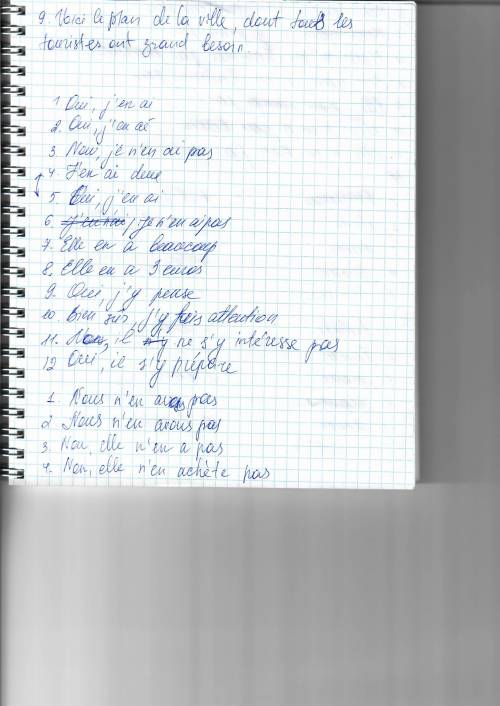 9. Voici le plan de la ville, dont tous les
touristes ont grand besoin.
1. Oui, j'en ai
2. Oui, j'en ai
3. Non, je n'en ai pas
4. J'en ai deux
5. Oui, j'en ai
6. je n'en ai pas
7. Elle en a beaucoup
8. Elle en a 3 euros
9. Oui, j'y pense
10. Bien sûr, j'y fais attention
11. Non, il ne s'y intéresse pas
12 Oui, il s'y prépare
1. Nous n'en avons pas
2. Nous n'en avons pas
3. Non, elle n'en a pas
4. Non, elle n'en achète pas